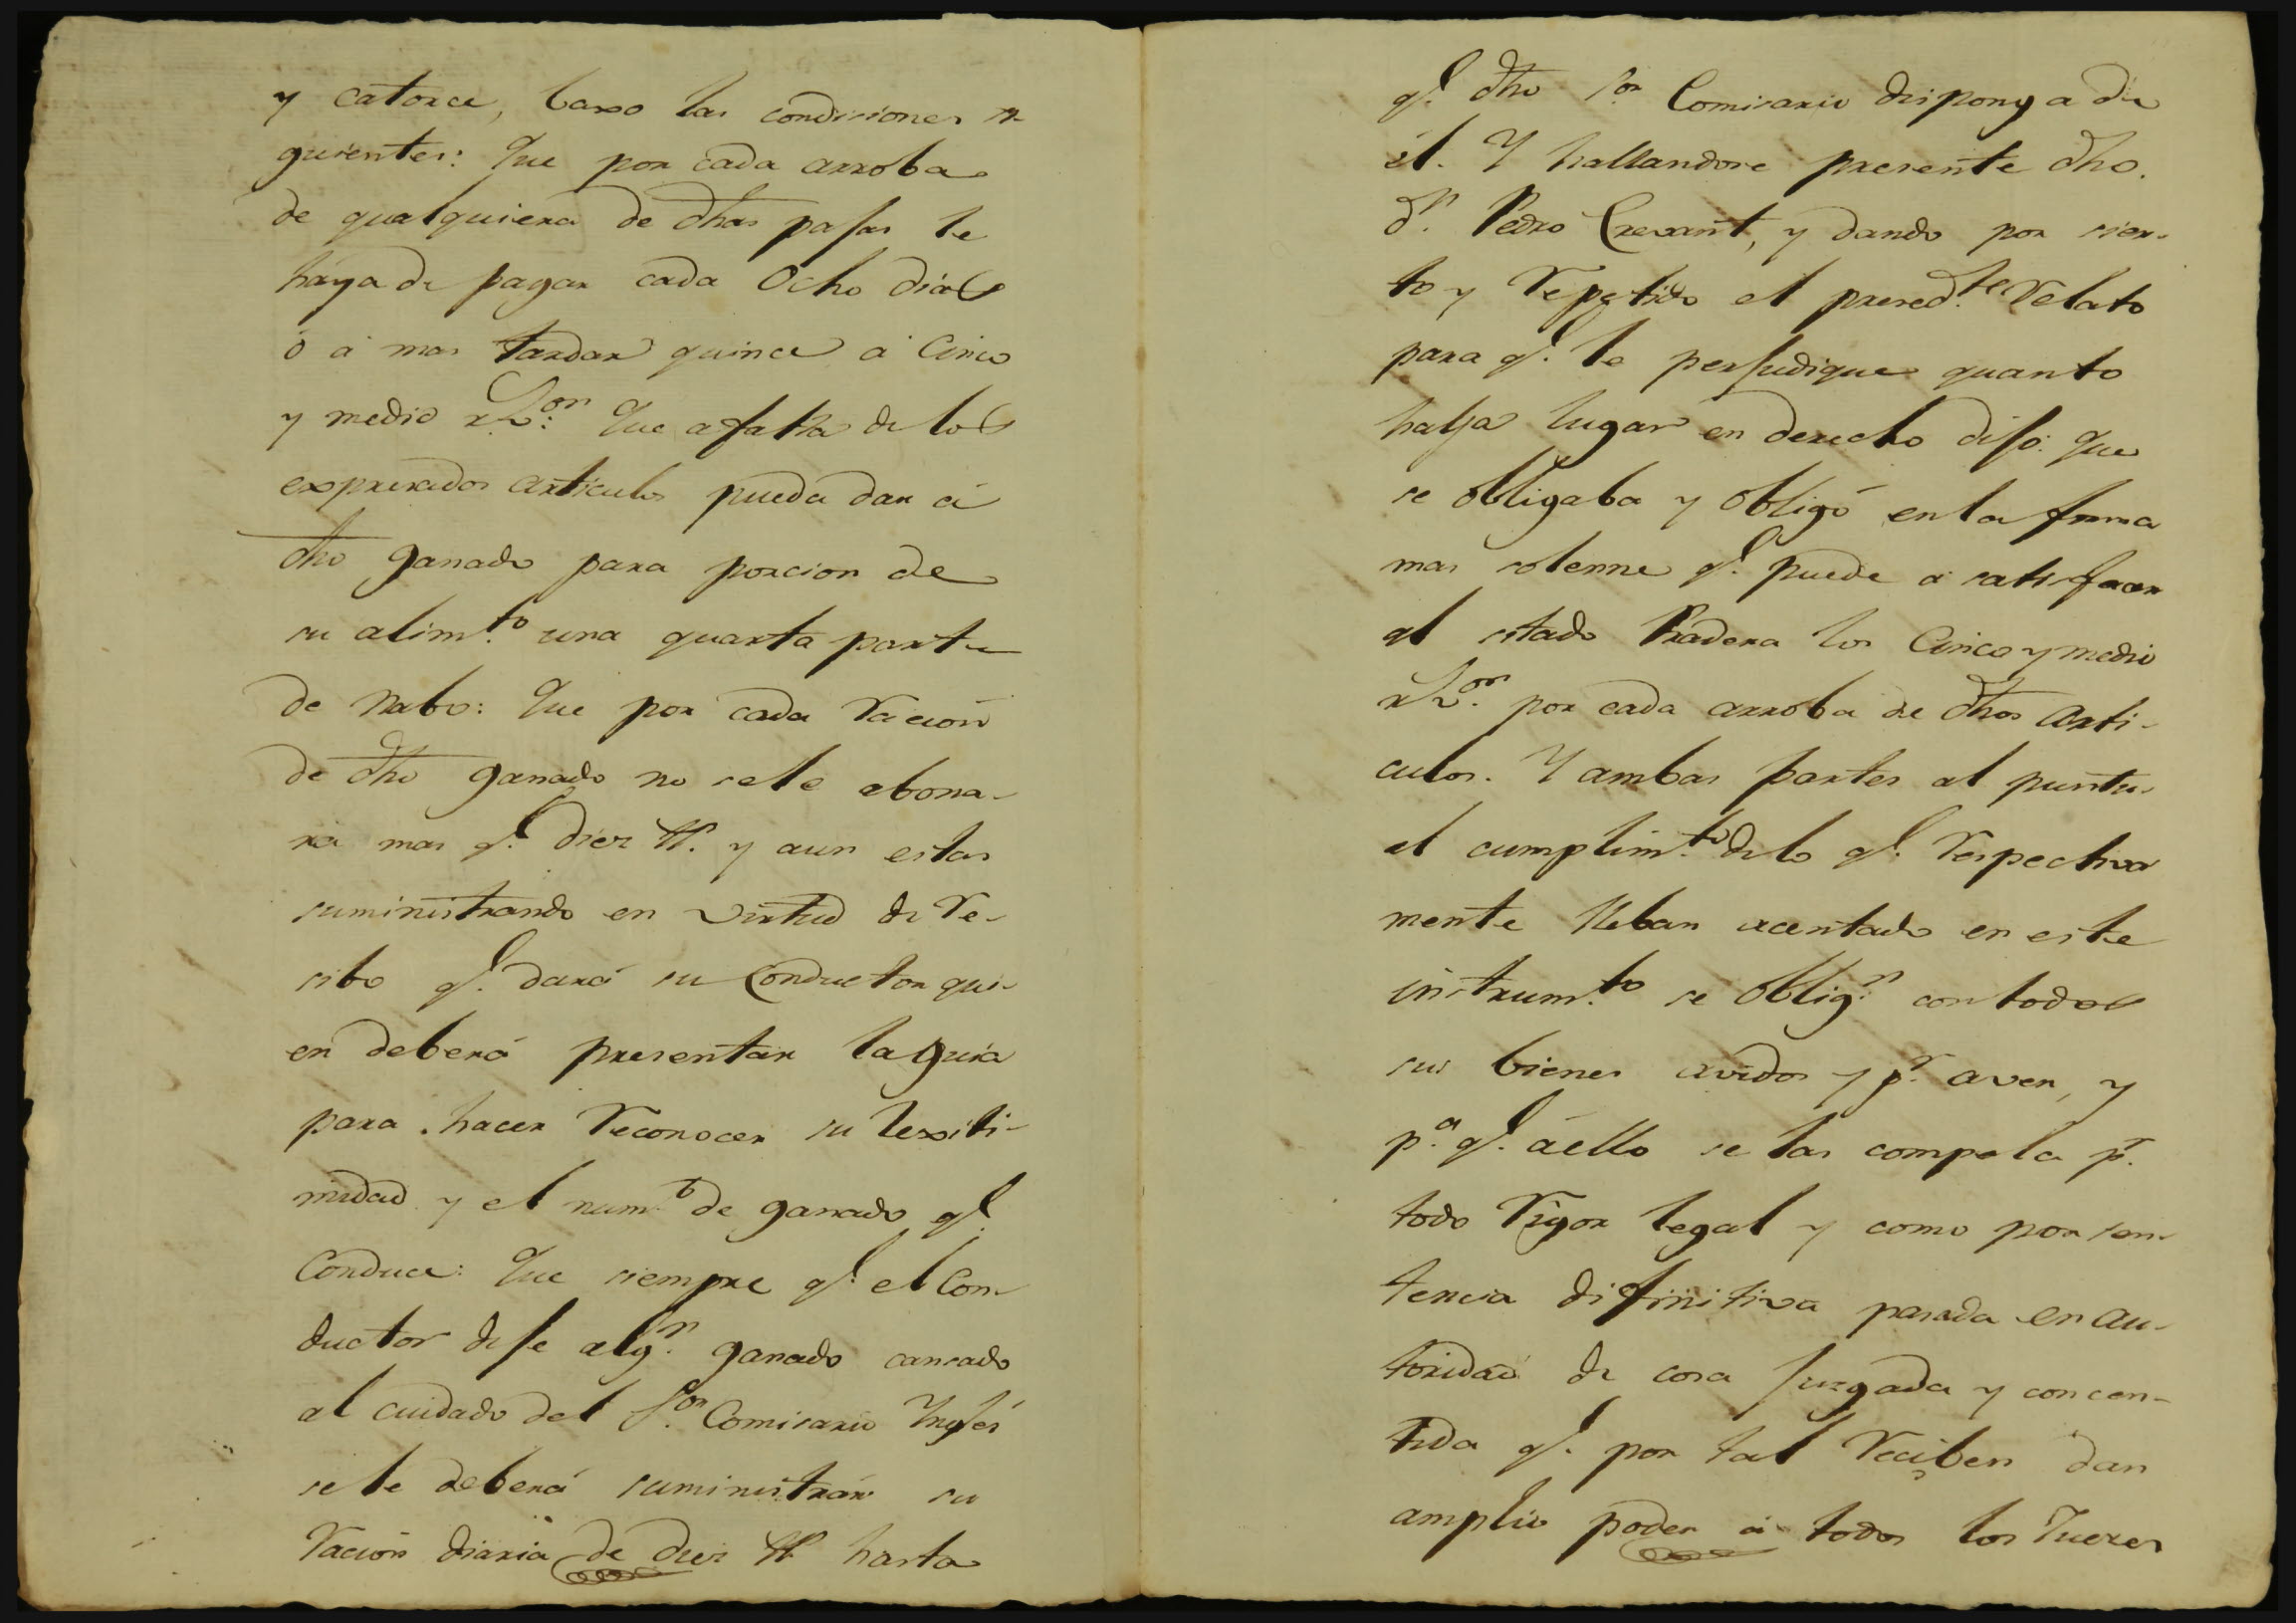 y catorce, baxo las condisiones si-
guientes: Que por cada arroba
de qualquiera de dhas pajas le
haya de pagar cada Ocho dias
ó á mas tardar quince á Cinco
y medio r.^s v.^on: Que afalta de los
expresados articulos pueda dar á
dho ganado para porcion de
su alim.^to una quarta parte
de Nabo: Que por cada racion
de dho ganado no sele abona-
rá mas q.^e diez lb. y aun estas
suministrando en virtud de re-
sibo q.^e dará su Conductor qui-
en deberá presentar la guia
para hacer reconocer su lexiti-
midad y el num.^o de ganado q.^e
Conduce: Que siempre q.^e el Con-
ductor deje alg.^n ganado cansado
al cuidado del S.^or Comisario Ingles
sele deberá suministrar su
racion diaria de diez lb hasta
q.^e dho S.^or Comisario disponga de
él. Y hallandose presente dho.
d.^n Pedro Crexant, y dando por sier-
to y repetido el presed.^te relato
para q.^e le perjudique quanto
halla lugar en derecho dijo: Que
se obligaba y obligó en la forma
mas solemne q.^e puede á satisfacer
al sitado Pradera los Cinco y medio
r.^s v.^on por cada arroba de dhos arti-
culos. Y ambas partes al puntu-
al cumplim.^to delo q.^e respectiva
mente lleban acentado en este
instrum.^to se oblig.^n con todos
sus bienes avidos y p.^r aver, y
p.^a q.^e áello se las compela p.^r
todo rigor legal y como por sen-
tencia difinitiva pasada en au-
toridad de cosa juzgada y concen-
tida q.^e por tal reciben dan
amplio poder á todos los Jueces